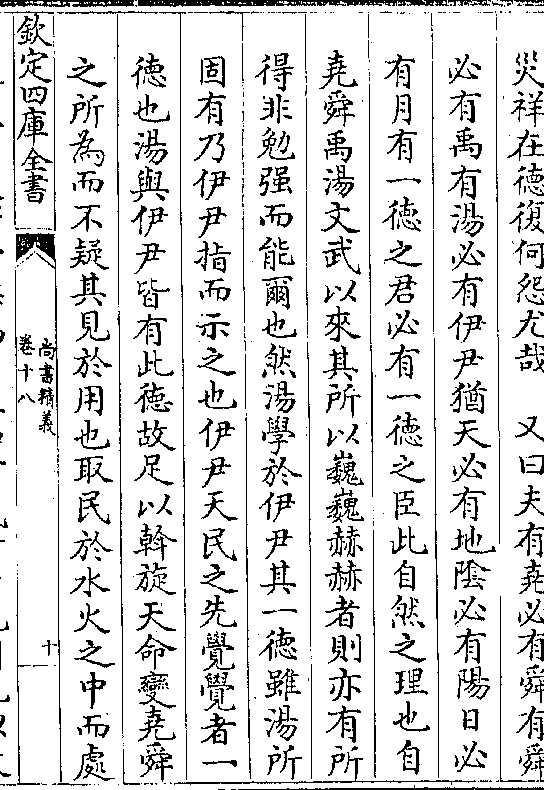 災祥在德復何怨尤哉　又曰夫有堯必有舜有舜
必有禹有湯必有伊尹猶天必有地陰必有陽日必
有月有一德之君必有一德之臣此自然之理也自
堯舜禹湯文武以來其所以巍巍赫赫者則亦有所
得非勉强而能爾也然湯學於伊尹其一德雖湯所
固有乃伊尹指而示之也伊尹天民之先覺覺者一
德也湯與伊尹皆有此德故足以斡旋天命變堯舜
之所為而不疑其見於用也取民於水火之中而處
欽定四庫全書
尚書精義
卷十八
十